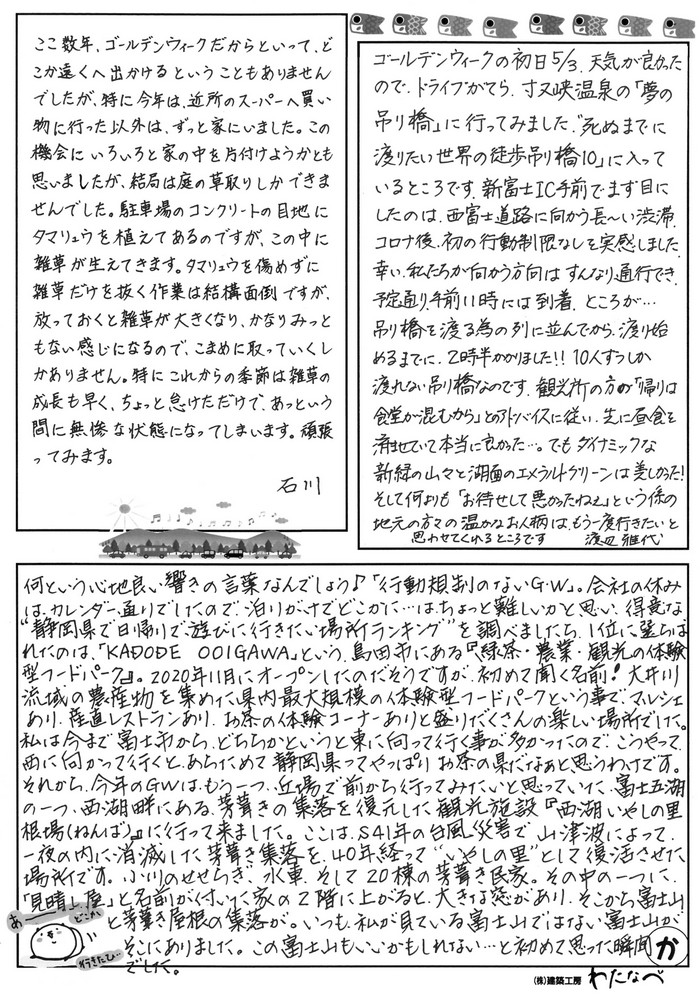 ここ数年、ゴールデンウィークだからといって、ど
こか遠くへ出かけるということもありません
でしたが、特に今年は、近所のスーパーへ買い
物に行った以外は、ずっと家にいました。この
機会にいろいろと家の中を片付けようかとも
思いましたが、結局は庭の草取りしかできま
せんでした。駐車場のコンクリートの目地に
タマリュウを植えてあるのですが、この中に
雑草が生えてきます。タマリュウを傷めずに
雑草だけを抜く作業は結構面倒ですが、
放っておくと雑草が大きくなり、かなりみっと
もない感じになるので、こまめに取っていくし
かありません。特にこれからの季節は雑草の
成長も早く、ちょっと怠けただけで、あっという
間に無惨な状態になってしまいます。頑張
ってみます。
石川
ゴールデンウィークの初日5/3、天気が良かった
ので、ドライブがてら、寸又峡温泉の「夢の
吊り橋」に行ってみました。"死ぬまでに
渡りたい世界の徒歩吊り橋10"に入って
いるところです。新富士IC手前でまず目に
したのは、西富士道路に向かう長〜い渋滞。
コロナ後、初の行動制限なしを実感しました。
幸い、私たちが向かう方向はすんなり通行でき、
予定通り、午前11時には到着。ところが…
吊り橋を渡る為の列に並んでから、渡り始
めるまでに、2時半かかりました!!10人ずつしか
渡れない吊り橋なのです。観光所の方の「帰りは
食堂が混むから」とのアドバイスに従い、先に昼食を
済ませていて本当に良かった…。でもダイナミックな
新緑の山々と湖面のエメラルドグリーンは美しかった!
そして何よりも「お待せして悪かったねぇ」という係の
地元の方々の温かなお人柄は、もう一度行きたいと
思わせてくれるところです 渡辺雅代
何という心地良い響きの言葉なんでしょう♪「行動規制のないG・W」。会社の休み
は、カレンダー通りでしたので、泊りがけでどこかに…は、ちょっと難しいかと思い、得意な
"静岡県で日帰りで遊びに行きたい場所ランキング"を調べましたら、1位に登らば
れたのは、「KADODE OOIGAWA」という、島田市にある『緑茶・農業・観光の体験
型フードパーク』。2020年11月にオープンしたのだそうですが、初めて聞く名前!大井川
流域の農産物を集めた県内最大規模の体験型フードパークという事で、マルシェ
あり、産直レストランあり、お茶の体験コーナーありと盛りだくさんの楽しい場所でした。
私は今まで富士市から、どちらかというと東に向って行く事が多かったので、こうやって、
西に向かって行くと、あらためて静岡県ってやっぱりお茶の県だなぁと思うわけです。
それから、今年のGWは、もう一つ、近場で前から行ってみたいと思っていた、富士五湖
の一つ、西湖畔にある、茅葺きの集落を復元した観光施設『西湖いやしの里
根場(ねんば)』に行って来ました。ここは、S41年の台風災害で山津波によって、
一夜の内に消滅した茅葺き集落を、40年経って"いやしの里"として復活させた
場所です。小川のせせらぎ、水車、そして20棟の茅葺き民家。その中の一つに、
「見晴し屋」と名前が付いた家の2階に上がると、大きな窓があり、そこから富士山
と茅葺き屋根の集落が。いつも、私が見ている富士山ではない富士山が
そこにありました。この富士山もいいかもしれない…と初めて思った瞬間
でした。
あーー
どこか
行きたひ…
か
(株)建築工房 わたなべ